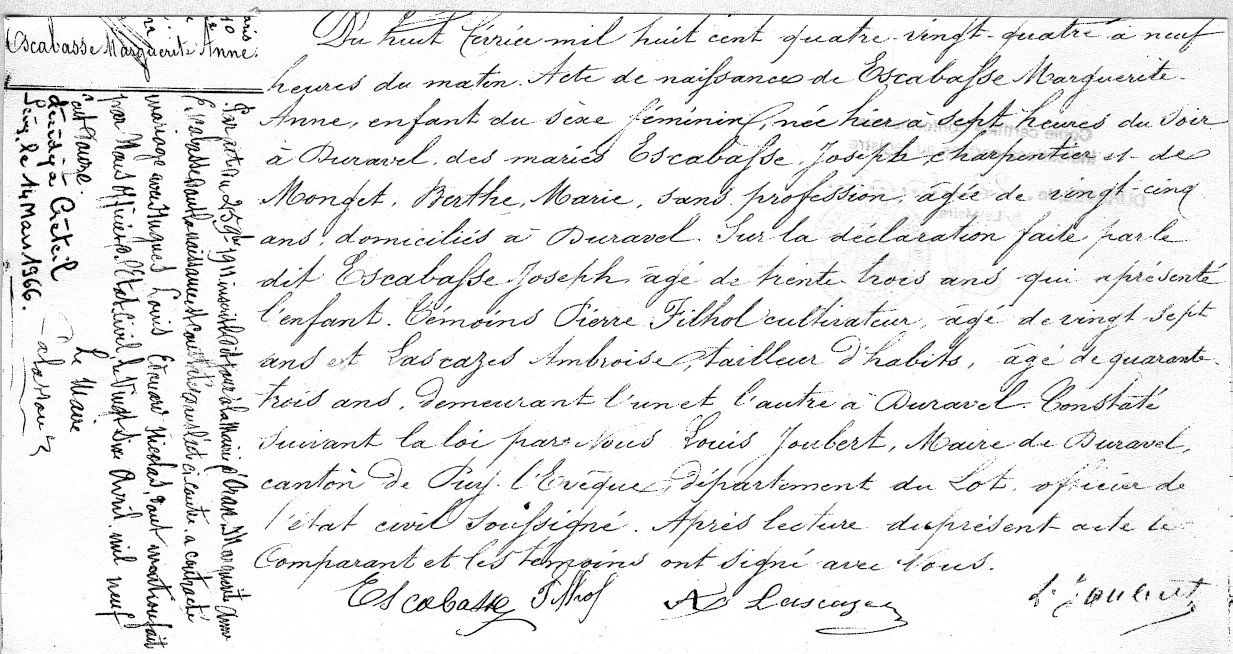 Escabasse Marguerite Anne.
Du huit février mil huit cent quatre-vingt-quatre à neuf
heures du matin. Acte de naissance de Escabasse Marguerite-
Anne, enfant du sèxe féminin, née hier à sept heures du soir
à Duravel, des mariés Escabasse, Joseph charpentier et de
Monget, Berthe, Marie, sans profession, âgée de vingt-cinq
ans, domiciliés à Duravel. Sur la déclaration faite par le
dit Escabasse Joseph âgé de trente trois ans qui a présenté
l'enfant. Témoins Pierre Filhol cultivateur, âgé de vingt sept
ans et Lascazes Ambroise, tailleur d'habits, âgé de quarante-
trois ans, demeurant l'un et l'autre à Duravel. Constaté
suivant la loi par Nous Louis Joubert, Maire de Duravel,
canton de Puy-l'Evêque, département du Lot, officier de
l'état civil soussigné. Après lecture du présent acte le
Comparant et les témoins ont signé avec Nous.
Escabasse Filhol A Lascazes Joubert
Marguerite Anne
Escabasse naissance est ci contre a contracté
mariage avec Louis Nicolas
par Nous Officier de l'Etat Civil le Vingt Avril mil neuf
Le Maire
décédée à Créteil
le 14 Mars 1966.